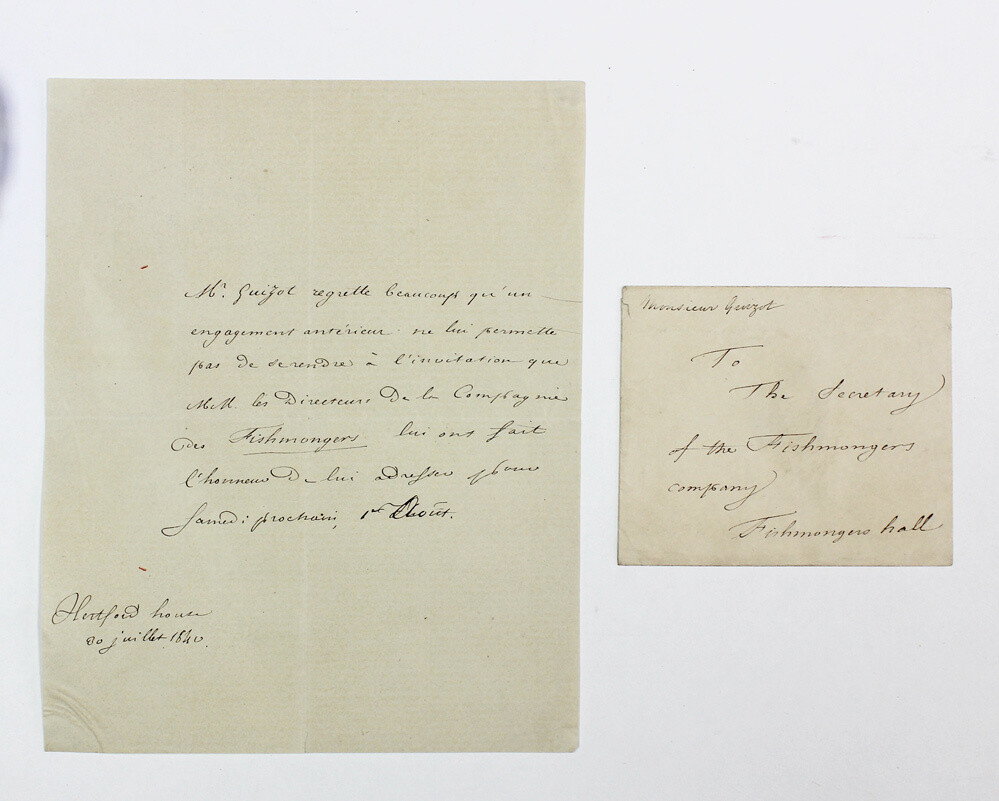 Mr. Guizot regrette beaucoup qu'un
engagement antérieur ne lui permette
pas de se rendre à l'invitation que
M.M. les Directeurs de la Compagnie
des Fishmongers lui ont fait
l'honneur de lui adresser pour
samedi prochain, 1er Août.
Hertford house
30 juillet 1840.
Monsieur Guizot
To
The Secretary
of the Fishmongers
company
Fishmongers hall